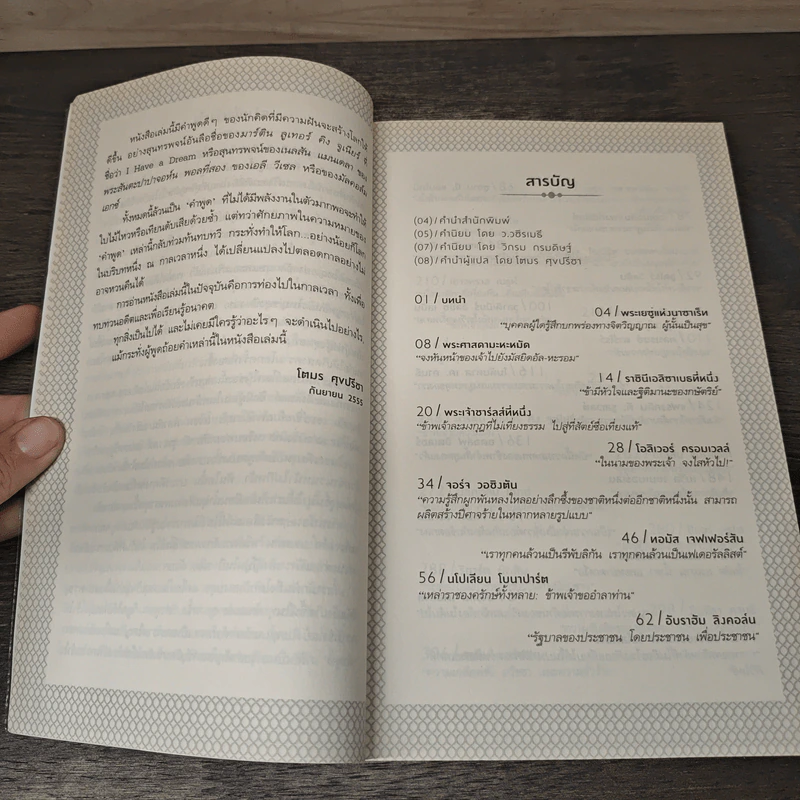 หนังสือเล่มนี้มีคำพูดดีๆ ของนักคิดที่มีความฝันจะสร้างโลกให้
ดีขึ้น อย่างสุนทรพจน์อันลือชื่อของมาร์ติน ลูเทอร์ คิง จูเนียร์ ที่
ชื่อว่า I Have a Dream หรือสุนทรพจน์ของเนลสัน แมนเดลา ของ
พระสันตะปาปาจอห์น พอลที่สอง ของเอลี วีเซล หรือของมัลคอล์ม
เอกซ์
ทั้งหมดนี้ล้วนเป็น 'คำพูด' ที่ไม่ได้มีพลังงานในตัวมากพอจะทำให้
ใบไม้ไหวหรือเทียนดับเสียด้วยซ้ำ แต่ทว่าศักยภาพในความหมายของ
'คำพูด' เหล่านี้กลับท่วมท้นทบทวี กระทั่งทำให้โลก...อย่างน้อยก็โลก
ในบริบทหนึ่ง ณ กาลเวลาหนึ่ง ได้เปลี่ยนแปลงไปตลอดกาลอย่างไม่
อาจหวนคืนได้
การอ่านหนังสือเล่มนี้ในปัจจุบันคือการท่องไปในกาลเวลา ทั้งเพื่อ
ทบทวนอดีตและเพื่อเรียนรู้อนาคต
ทุกสิ่งเป็นไปได้ และไม่เคยมีใครรู้ว่าอะไรๆ จะดำเนินไปอย่างไร
แม้กระทั่งผู้พูดถ้อยคำเหล่านี้ในหนังสือเล่มนี้
โตมร ศุขปรีชา
กันยายน 2555
สารบัญ
(04)/คำนำสำนักพิมพ์
(05)/คำนิยม โดย ว.วชิรเมธี
(07)/คำนิยม โดย วิกรม กรมดิษฐ์
(08)/คำนำผู้แปล โดย โตมร ศุขปรีชา
01/บทนำ
04/พระเยซูแห่งนาซาเร็ท
"บุคคลผู้ใดรู้สึกบกพร่องทางจิตวิญญาณ ผู้นั้นเป็นสุข"
08/พระศาสดามะหะหมัด
"จงหันหน้าของเจ้าไปยังมัสยิดอัล-หะรอม"
14/ราชินีเอลิซาเบธที่หนึ่ง
"ข้ามีหัวใจและฐิติมานะของกษัตริย์"
20/พระเจ้าชาร์ลส์ที่หนึ่ง
"ข้าพเจ้าละมงกุฎที่ไม่เที่ยงธรรม ไปสู่ที่สัตย์ซื่อเที่ยงแท้"
28/โอลิเวอร์ ครอมเวลล์
"ในนามของพระเจ้า จงไสหัวไป!"
34/จอร์จ วอชิงตัน
"ความรู้สึกผูกพันหลงใหลอย่างลึกซึ้งของชาติหนึ่งต่ออีกชาติหนึ่งนั้น สามารถ
ผลิตสร้างปีศาจร้ายในหลากหลายรูปแบบ"
46/ทอมัส เจฟเฟอร์สัน
"เราทุกคนล้วนเป็นรีพับลิกัน เราทุกคนล้วนเป็นเฟเดอรัลลิสต์"
56/นโปเลียน โบนาปาร์ต
"เหล่าราชองครักษ์ทั้งหลาย: ข้าพเจ้าขออำลาท่าน"
62/อับราฮัม ลิงคอล์น
"รัฐบาลของประชาชน โดยประชาชน เพื่อประชาชน"